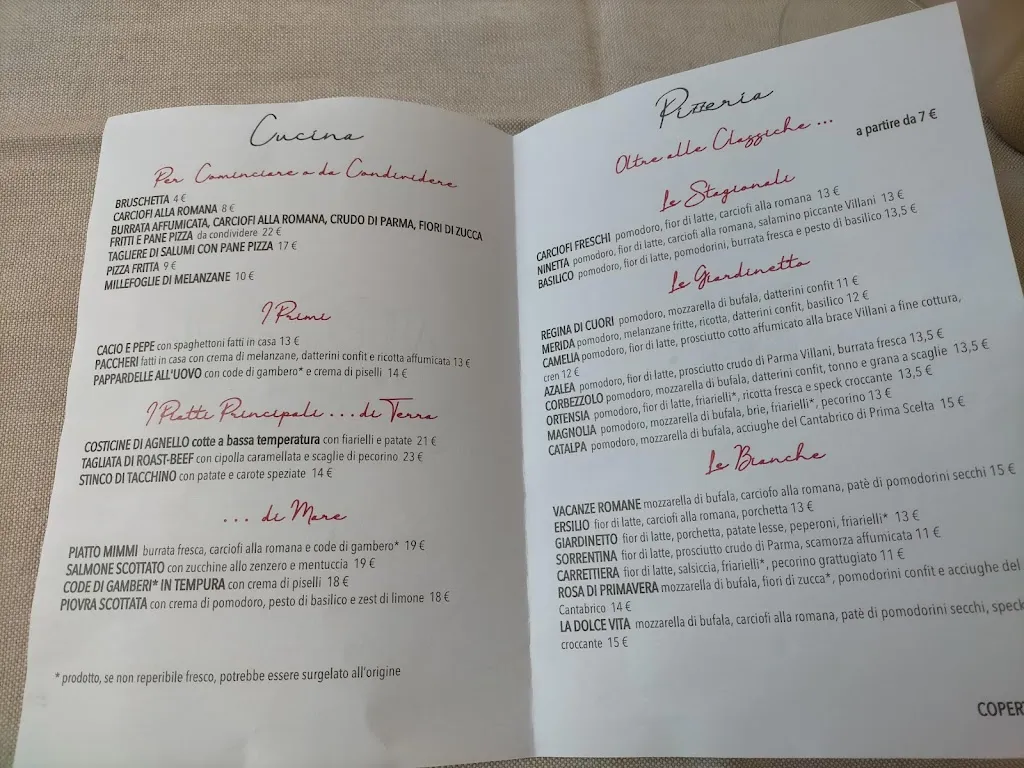 Cucina
Per Cominciare o da Condividere
BRUSCHETTA 4 €
CARCIOFI ALLA ROMANA 8 €
BURRATA AFFUMICATA, CARCIOFI ALLA ROMANA, CRUDO DI PARMA, FIORI DI ZUCCA
FRITTI E PANE PIZZA da condividere 22 €
TAGLIERE DI SALUMI CON PANE PIZZA 17 €
PIZZA FRITTA 9 €
MILLEFOGLIE DI MELANZANE 10 €
I Primi
CACIO E PEPE con spaghettoni fatti in casa 13 €
PACCHERI fatti in casa con crema di melanzane, datterini confit e ricotta affumicata 13 €
PAPPARDELLE ALL'UOVO con code di gambero* e crema di piselli 14 €
I Piatti Principali ... di Terra
COSTICINE DI AGNELLO cotte a bassa temperatura con fiarielli e patate 21 €
TAGLIATA DI ROAST-BEEF con cipolla caramellata e scaglie di pecorino 23 €
STINCO DI TACCHINO con patate e carote speziate 14 €
... di Mare
PIATTO MIMMI burrata fresca, carciofi alla romana e code di gambero* 19 €
SALMONE SCOTTATO con zucchine allo zenzero e mentuccia 19 €
CODE DI GAMBERI* IN TEMPURA con crema di piselli 18 €
PIOVRA SCOTTATA con crema di pomodoro, pesto di basilico e zest di limone 18 €
* prodotto, se non reperibile fresco, potrebbe essere surgelato all'origine
Pizzeria
Oltre alle Classiche ... a partire da 7 €
Le Stagionali
CARCIOFI FRESCHI pomodoro, fior di latte, carciofi alla romana 13 €
NINETTA pomodoro, fior di latte, carciofi alla romana, salamino piccante Villani 13 €
BASILICO pomodoro, fior di latte, pomodorini, burrata fresca e pesto di basilico 13,5 €
Le Giardinetto
REGINA DI CUORI pomodoro, mozzarella di bufala, datterini confit 11 €
MERIDA pomodoro, melanzane fritte, ricotta, datterini confit, basilico 12 €
CAMELIA pomodoro, fior di latte, prosciutto cotto affumicato alla brace Villani a fine cottura,
cren 12 €
AZALEA pomodoro, fior di latte, prosciutto crudo di Parma Villani, burrata fresca 13,5 €
CORBEZZOLO pomodoro, mozzarella di bufala, datterini confit, tonno e grana a scaglie 13,5 €
ORTENSIA pomodoro, fior di latte, friarielli*, ricotta fresca e speck croccante 13,5 €
MAGNOLIA pomodoro, mozzarella di bufala, brie, friarielli*, pecorino 13 €
CATALPA pomodoro, mozzarella di bufala, acciughe del Cantabrico di Prima Scelta 15 €
Le Bianche
VACANZE ROMANE mozzarella di bufala, carciofo alla romana, patè di pomodorini secchi 15 €
ERSILIO fior di latte, carciofi alla romana, porchetta 13 €
GIARDINETTO fior di latte, porchetta, patate lesse, peperoni, friarielli* 13 €
SORRENTINA fior di latte, prosciutto crudo di Parma, scamorza affumicata 11 €
CARRETTIERA fior di latte, salsiccia, friarielli*, pecorino grattugiato 11 €
ROSA DI PRIMAVERA mozzarella di bufala, fiori di zucca*, pomodorini confit e acciughe del
Cantabrico 14 €
LA DOLCE VITA mozzarella di bufala, carciofi alla romana, patè di pomodorini secchi, speck
croccante 15 €
COPER